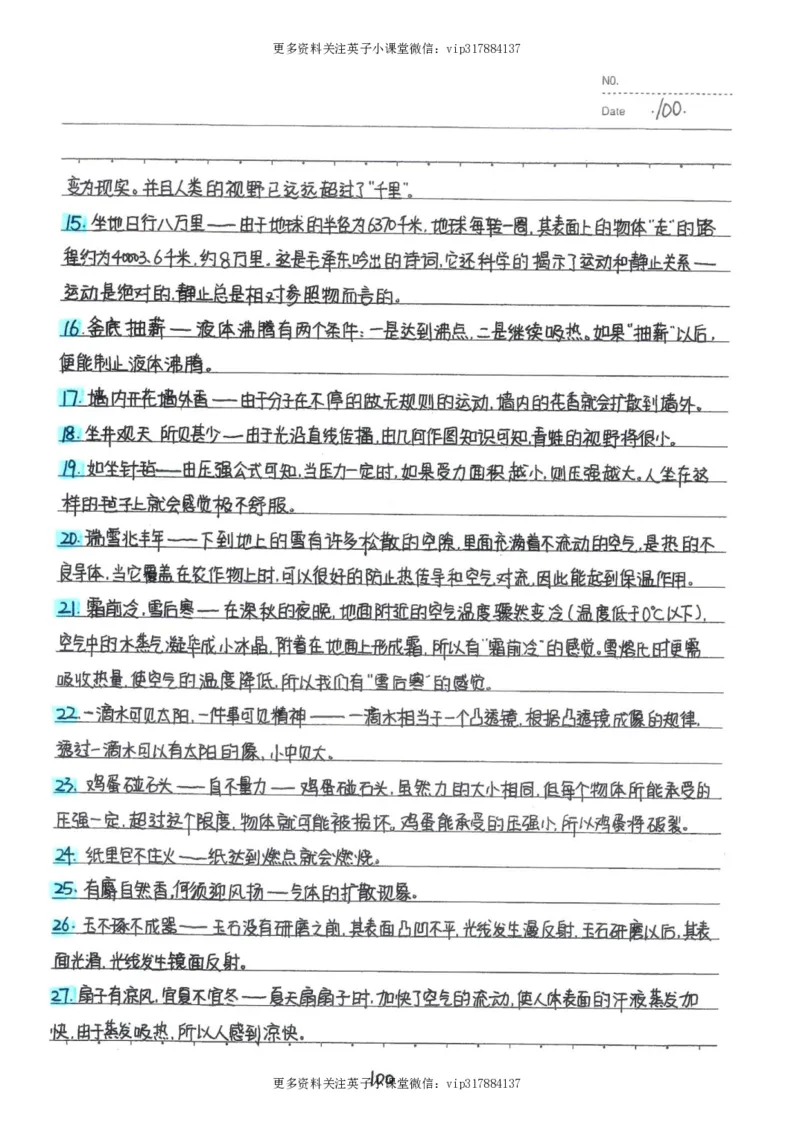 更多资料关注英子小课堂微信：vip317884137
NO.
Date ·100·
变为现实。并且人类的视野已远远超过了"千里"。
15. 坐地日行八万里——由于地球的半径为6370千米,地球每转一圈,其表面上的物体"走"的路
程约为40003.6千米,约8万里。这是毛泽东吟出的诗词,它还科学的揭示了运动和静止关系——
运动是绝对的,静止总是相对参照物而言的。
16. 釜底抽薪——液体沸腾有两个条件:一是达到沸点,二是继续吸热。如果"抽薪"以后,
便能制止液体沸腾。
17. 墙内开花墙外香——由于分子在不停的做无规则的运动,墙内的花香就会扩散到墙外。
18. 坐井观天 所见甚少——由于光沿直线传播,由几何作图知识可知,青蛙的视野将很小。
19. 如坐针毡——由压强公式可知,当压力一定时,如果受力面积越小,则压强越大。人坐在这
样的毡子上就会感觉极不舒服。
20. 瑞雪兆丰年——下到地上的雪有许多松散的空隙,里面充满着不流动的空气,是热的不
良导体,当它覆盖在农作物上时,可以很好的防止热传导和空气对流,因此能起到保温作用。
21. 霜前冷,雪后寒——在深秋的夜晚,地面附近的空气温度骤然变冷(温度低于0℃以下),
空气中的水蒸气凝华成小冰晶,附着在地面上形成霜,所以有"霜前冷"的感觉。雪熔化时更需
吸收热量,使空气的温度降低,所以我们有"雪后寒"的感觉。
22. 一滴水可见太阳,一件事可见精神——一滴水相当于一个凸透镜,根据凸透镜成像的规律,
透过一滴水可以有太阳的像,小中见大。
23. 鸡蛋碰石头——自不量力——鸡蛋碰石头,虽然力的大小相同,但每个物体所能承受的
压强一定,超过这个限度,物体就可能被损坏。鸡蛋能承受的压强小,所以鸡蛋将破裂。
24. 纸里包不住火——纸达到燃点就会燃烧。
25. 有麝自然香,何须迎风扬——气体的扩散现象。
26. 玉不琢不成器——玉石没有研磨之前,其表面凸凹不平,光线发生漫反射,玉石研磨以后,其表
面光滑,光线发生镜面反射。
27. 扇子有凉风,宜夏不宜冬——夏天扇扇子时,加快了空气的流动,使人体表面的汗液蒸发加
快,由于蒸发吸热,所以人感到凉快。
100
更多资料关注英子小课堂微信：vip317884137